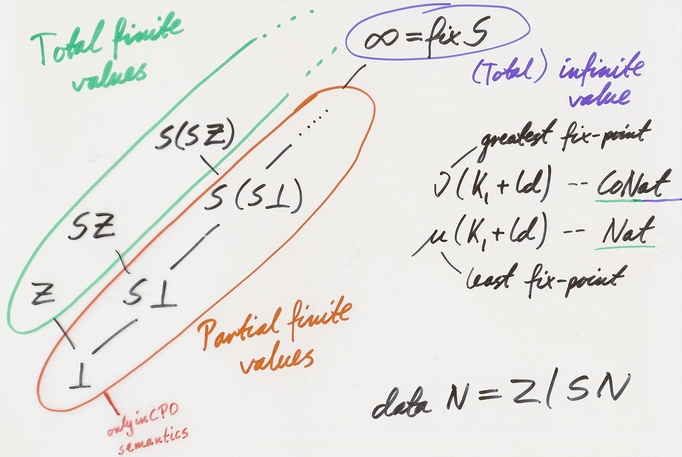 Total finite
values
∞ = fix S
(Total) infinite
value
greatest fix-point
ν(K₁+Id) -- CoNat
μ(K₁+Id) -- Nat
least fix-point
S(SZ)
S(S⊥)
SZ
S⊥
Z
⊥
Partial finite
values
only in CPO
semantics
data N = Z | S N